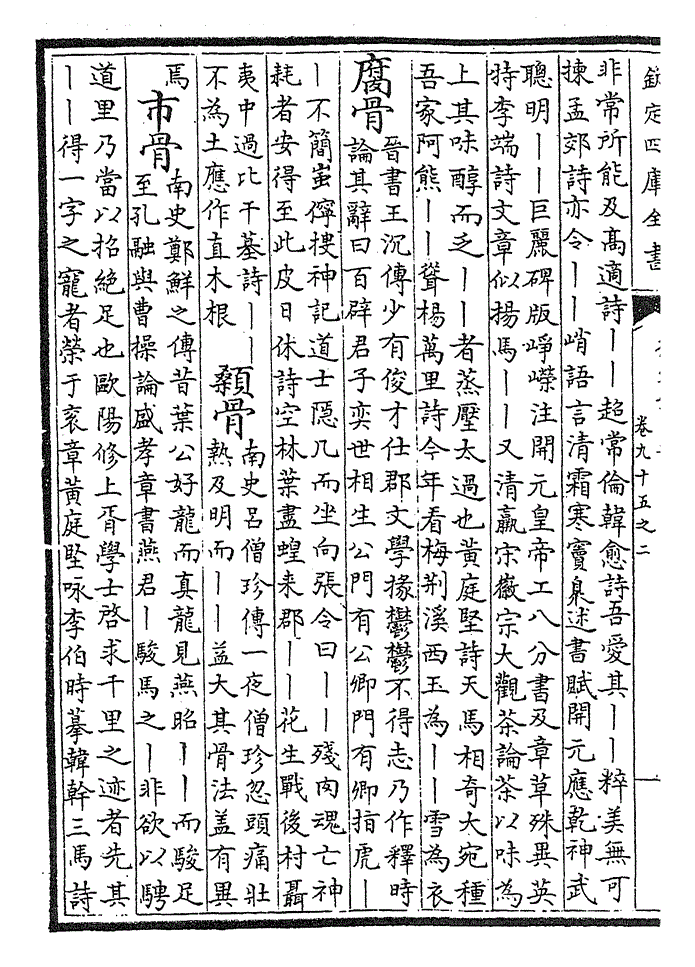 欽定四庫全書
卷九十五之二
非常所能及高適詩丨丨超常倫韓愈詩吾愛其丨丨粹美無可
揀孟郊詩亦令丨丨峭語言清霜寒竇臮述書賦開元應乾神武
聰明丨丨巨麗碑版崢嶸注開元皇帝工八分書及章草殊異英
特李端詩文章似揚馬丨丨又清羸宋徽宗大觀茶論茶以味為
上其味醇而乏丨丨者蒸壓太過也黄庭堅詩天馬相奇大宛種
吾家阿熊丨丨聳楊萬里詩今年看梅荆溪西玉為丨丨雪為衣
腐骨
晉書王沉傳少有俊才仕郡文學掾鬱鬱不得志乃作釋時
論其辭曰百辟君子奕世相生公門有公卿門有卿指虎丨
丨不簡蚩儜搜神記道士隱几而坐向張令曰丨丨殘肉魂亡神
耗者安得至此皮日休詩空林葉盡蝗来郡丨丨花生戰後村聶
夷中過比干墓詩丨丨
不為土應作直木根
顙骨
南史吕僧珍傳一夜僧珍忽頭痛壯
熱及明而丨丨益大其骨法盖有異
焉
市骨
南史鄭鮮之傳昔葉公好龍而真龍見燕昭丨丨而駿足
至孔融與曹操論盛孝章書燕君丨駿馬之丨非欲以騁
道里乃當以招絶足也歐陽修上胥學士啓求千里之迹者先其
丨丨得一字之寵者榮于衮章黄庭堅咏李伯時摹韓幹三馬詩